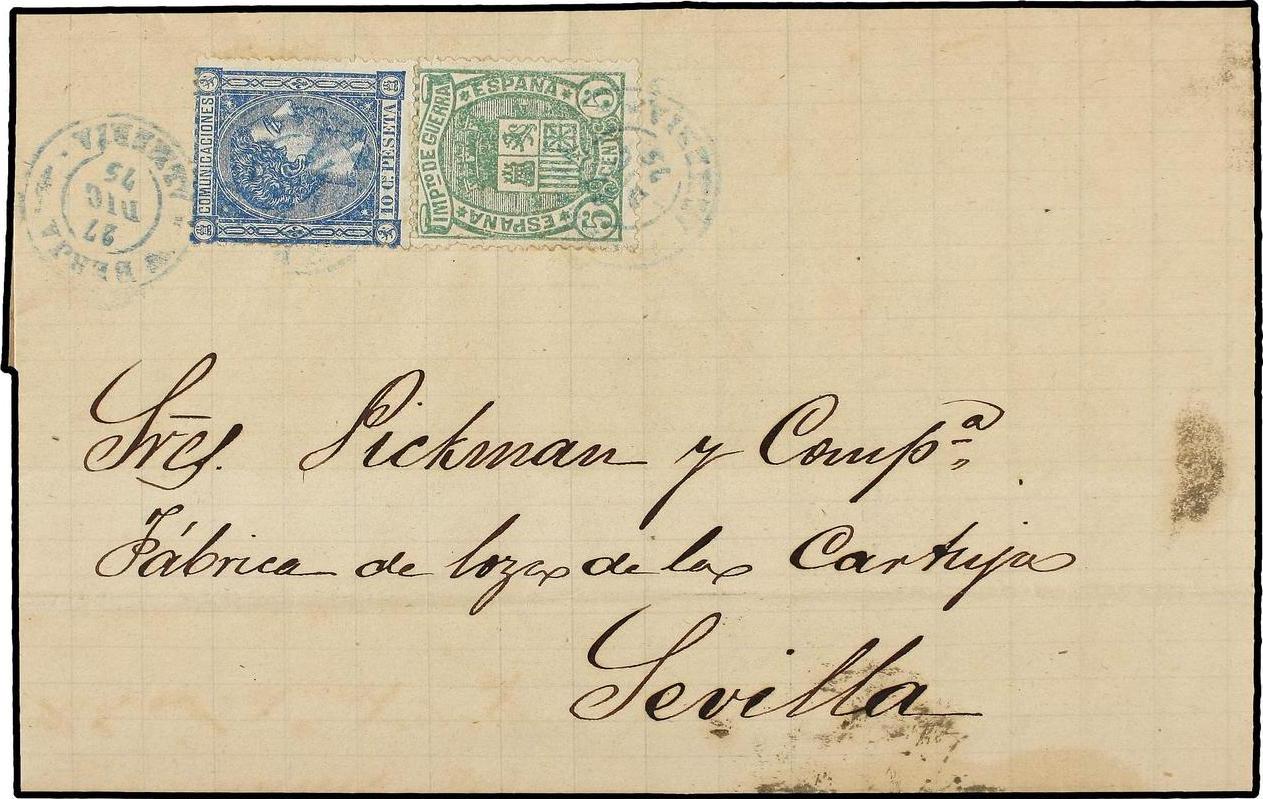 COMUNICACIONES
10 C. PESETA
IMPTO DE GUERRA
ESPAÑA
ESPAÑA
5 CENTS 5
BERJA
ALMERIA
27
DIC
75
Sres. Pickman y Compª
Fábrica de loza de la Cartuja
Sevilla